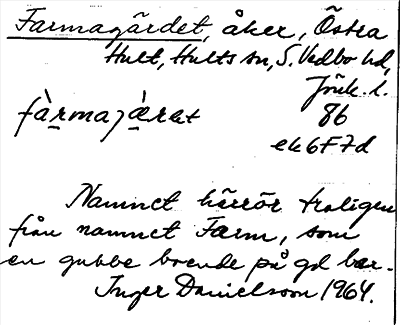 Farmagärdet, åker, Östra
Hult, Hults sn, S. Vedbo hd,
Jönk. l.
fàrmajä̀ret 86
ek 6F7d
Namnet härrör troligen
från namnet Farm, som
en gubbe boende på gd bar.
Inger Danielsson 1964.